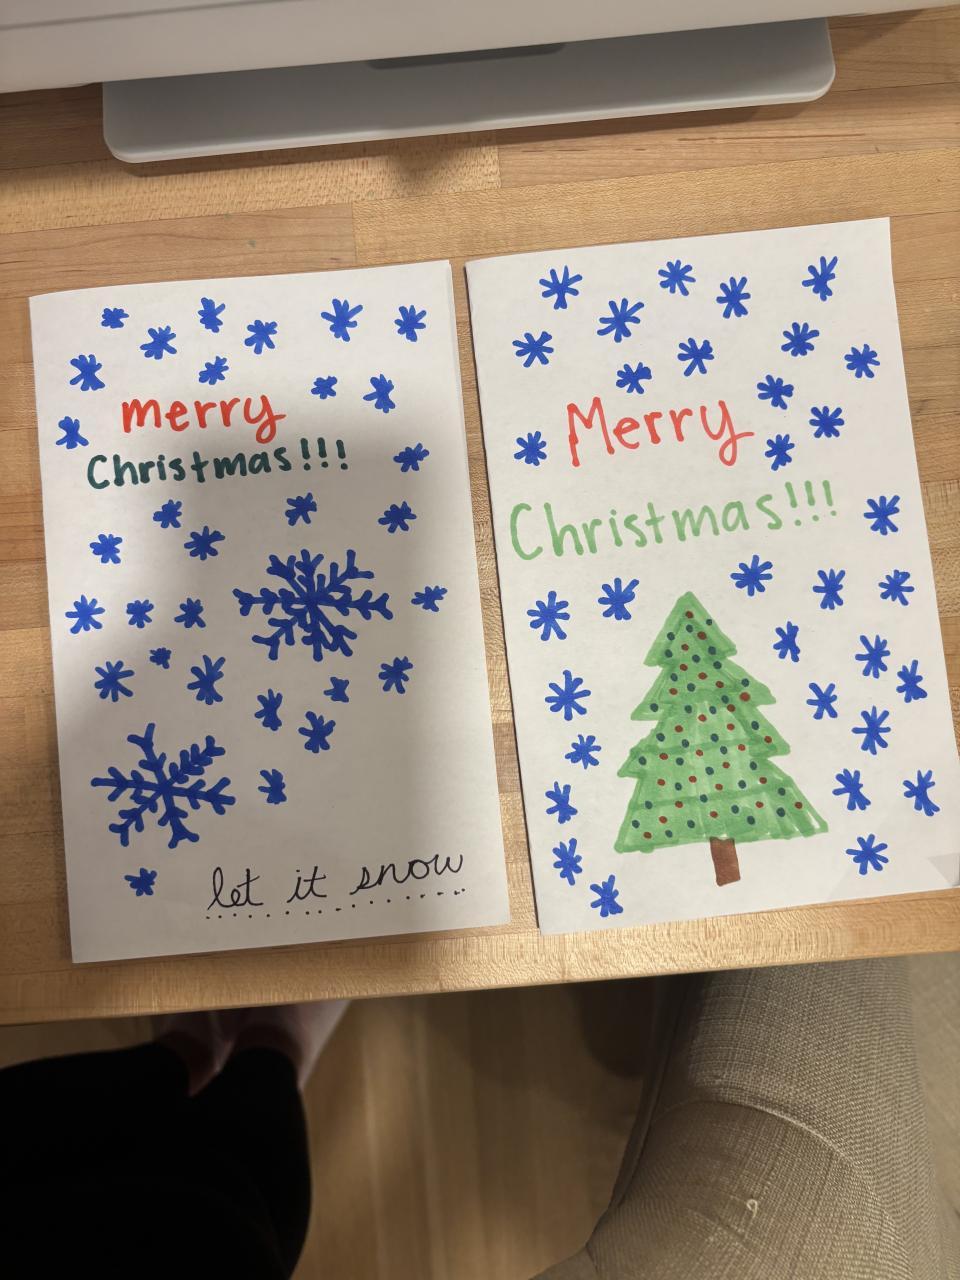 merry
Christmas!!!
let it snow
Merry
Christmas!!!